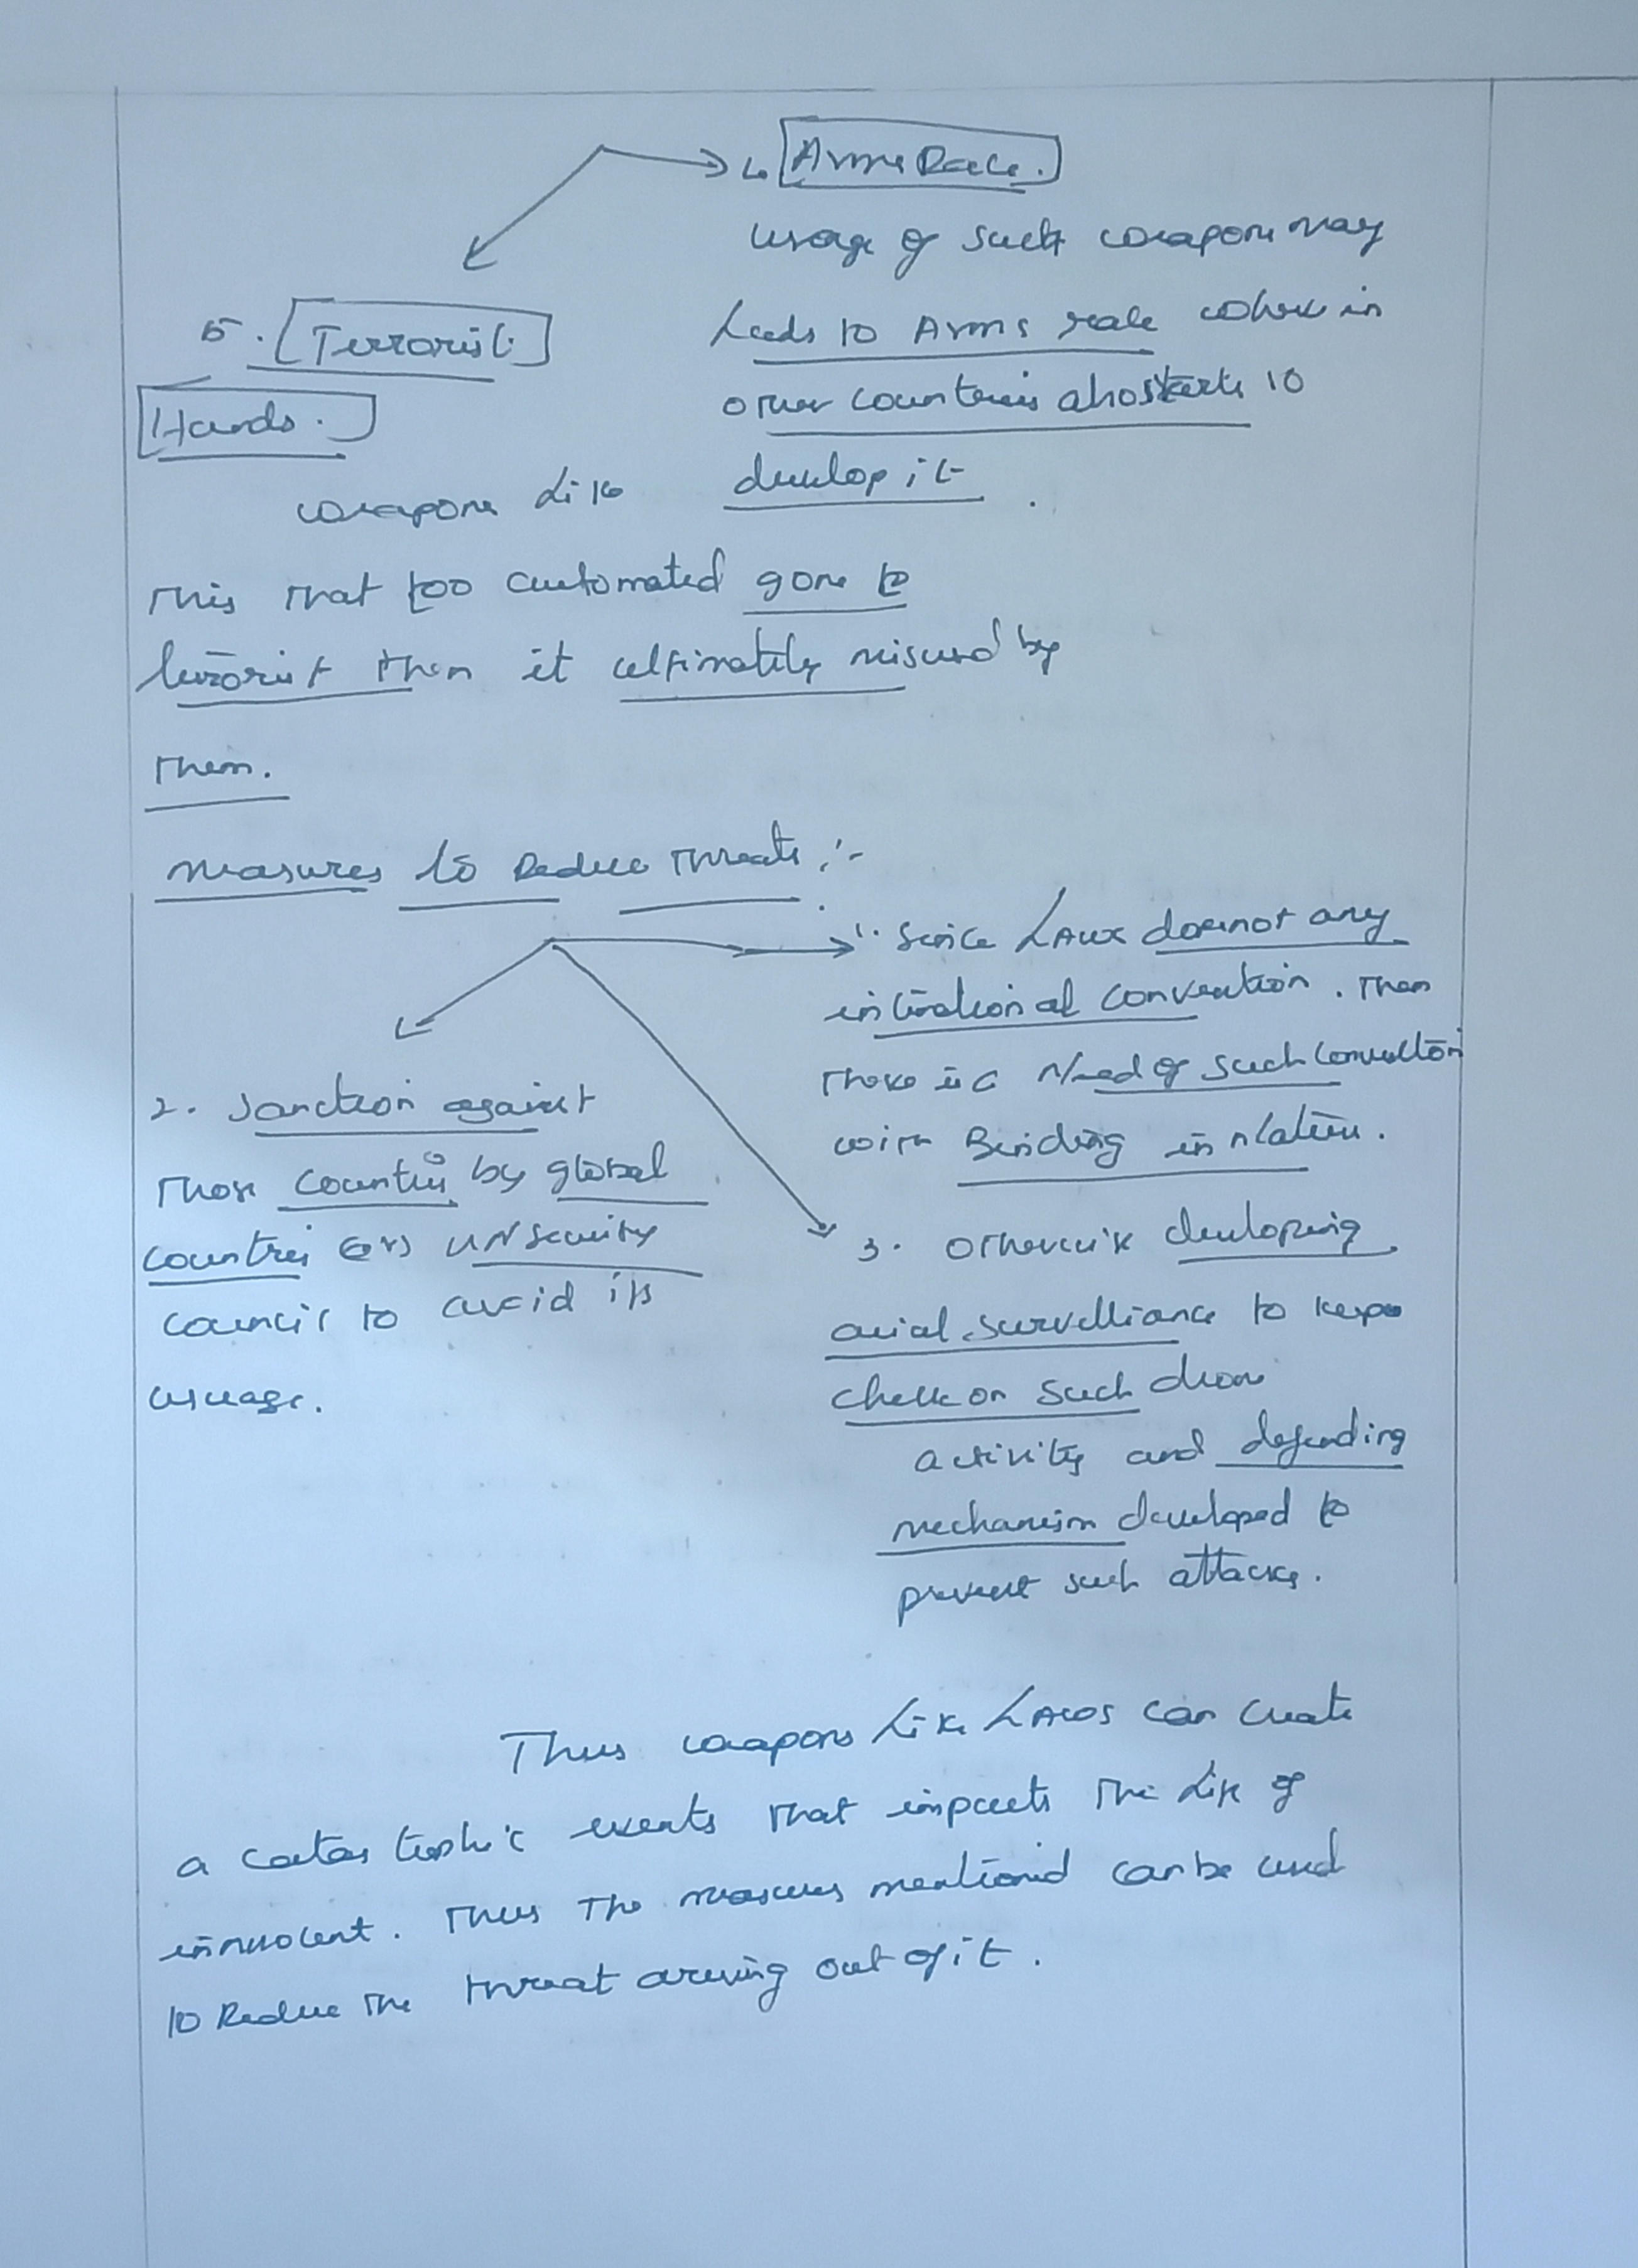 4. Arms Race.
usage of such weapons may
Leads to Arms race where in
other counteries also starts to
develop it.
5. Terrorist
Hands.
weapons like
This that too automated gone to
terrorist then it ultimately misused by
them.
Measures to Reduce Threats :-
1. Since LAWs doesnot any
intnational convention. Then
there is a Need of such convention
with Binding in nature.
2. Sanction against
Those countries by global
countries (or) UN Security
council to avoid its
usuage.
3. Otherwise developing
arial survelliance to keep
check on such drone
activity and defending
mechanism developed to
prevent such attacks.
Thus weapons like LAWS can create
a catastrophic events that impacts the life of
innnocent. Thus the measures mentioned can be used
to Reduce the threat arising out of it.